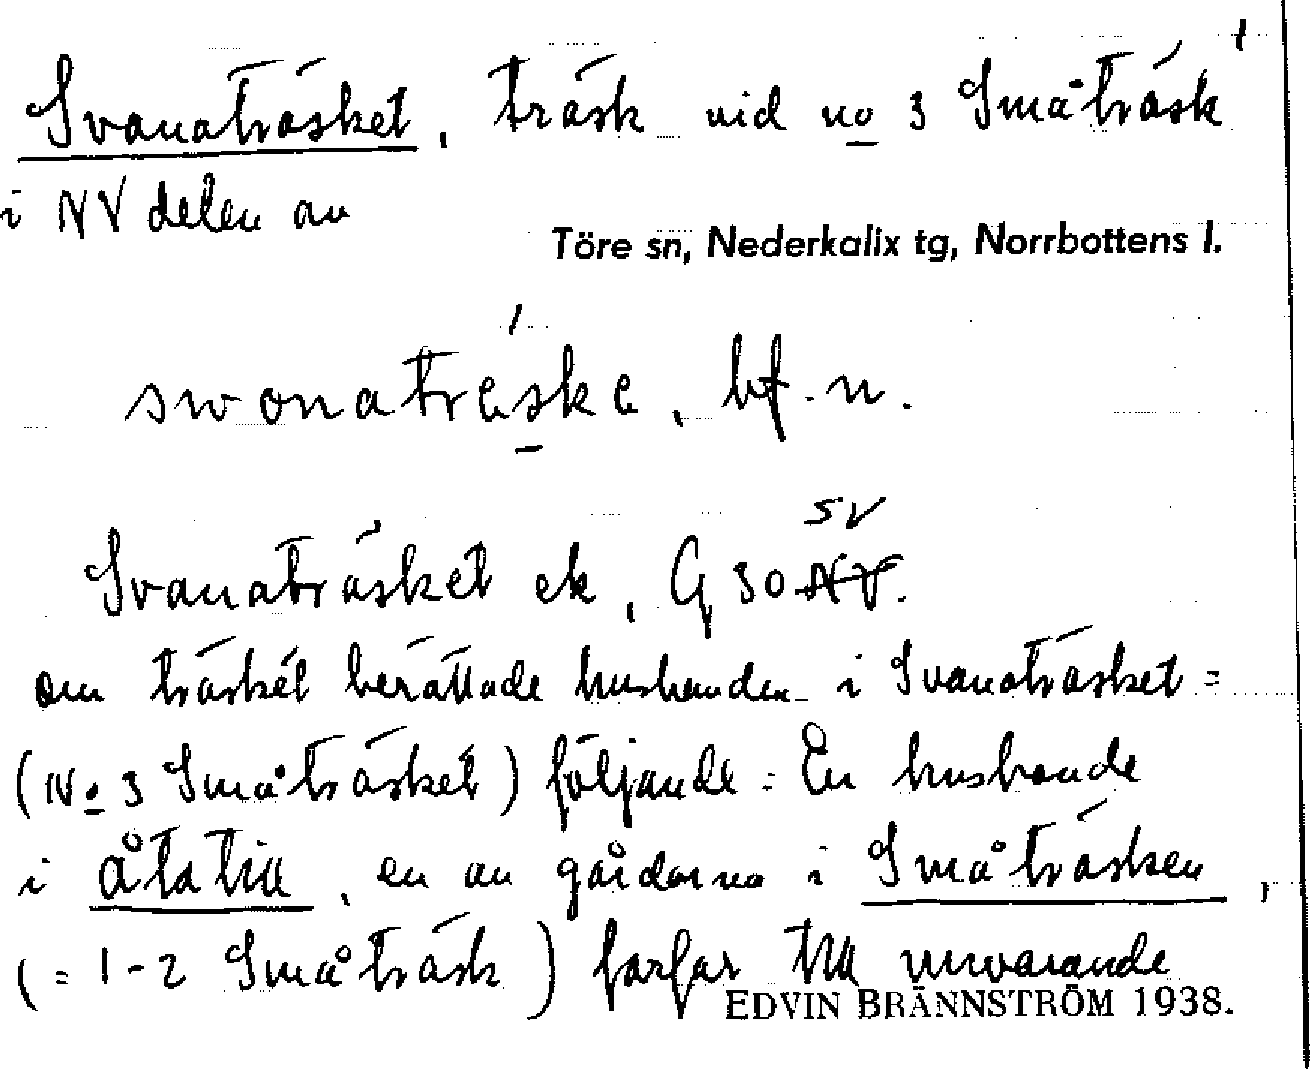 1
Svanaträsket, träsk vid no 3 Småträsk
i NV delen av
Töre sn, Nederkalix tg, Norrbottens l.
swonatreske, bf. n.
Svanaträsket ek, G 30 SV.
om träsket berättade husbonden i Svanaträsket =
(No 3 Småträsket) följande: En husbonde
i, en av gårdarna i Småträsken,
(= 1-2 Småträsk) farfar till nuvarande
EDVIN BRÄNNSTRÖM 1938.